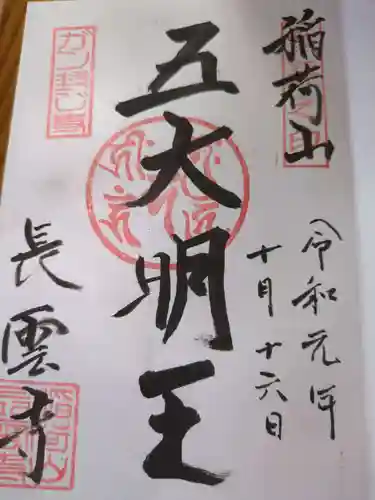 稲荷山
令和元年
十月十六日
五大明王
長雲寺